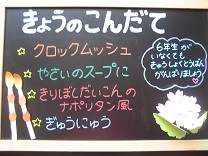 きょうのこんだて
クロックムッシュ
やさいのスープに
きりぼしだいこんの
ナポリタン風
ぎゅうにゅう
6年生が
いなくても
きゅうしょくとうばん
がんばりましょう